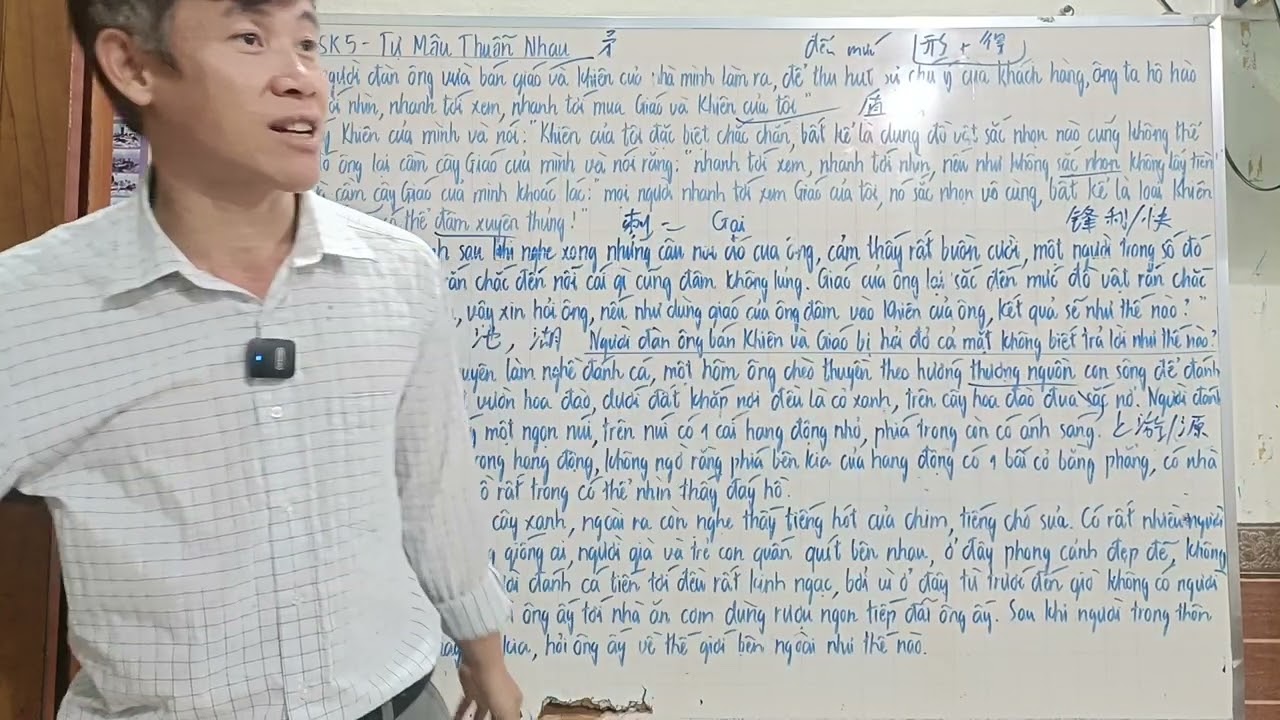 SK5 - Tự Mâu Thuẫn Nhau 矛 đến mức (形 + 得)
người đàn ông vừa bán giáo và khiên của nhà mình làm ra, để thu hút sự chú ý của khách hàng, ông ta hô hào
nhìn, nhanh tới xem, nhanh tới mua Giáo và Khiên của tôi" 盾
Khiên của mình và nói: "Khiên của tôi đặc biệt chắc chắn, bất kể là dụng đồ vật sắc nhọn nào cũng không thể
ông lại cầm cây Giáo của mình và nói rằng: "nhanh tới xem, nhanh tới nhìn, nếu như không sắc nhọn không lấy tiền
cầm cây Giáo của mình khoác lác: "mọi người nhanh tới xem Giáo của tôi, nó sắc nhọn vô cùng, bất kể là loại Khiên
thể đâm xuyên thủng!" 刺 = Gai 锋利/快
sau khi nghe xong những câu nói đó của ông, cảm thấy rất buồn cười, một người trong số đó
rắn chắc đến nỗi cái gì cũng đâm không lủng. Giáo của ông lại sắc đến mức đồ vật rắn chắc
, vậy xin hỏi ông, nếu như dùng giáo của ông đâm vào khiên của ông, kết quả sẽ như thế nào?"
池, 湖 Người đàn ông bán Khiên và Giáo bị hỏi đỏ cả mặt không biết trả lời như thế nào?
làm nghề đánh cá, một hôm ông chèo thuyền theo hướng thượng nguồn con sông để đánh
vườn hoa đào, dưới đất khắp nơi đều là cỏ xanh, trên cây hoa đào đua sắc nở. Người đánh
một ngọn núi, trên núi có 1 cái hang động nhỏ, phía trong còn có ánh sáng. 上游/源
trong hang động, không ngờ rằng phía bên kia của hang động có 1 bãi cỏ bằng phẳng, có nhà
rất trong có thể nhìn thấy đáy hồ.
cây xanh, ngoài ra còn nghe thấy tiếng hót của chim, tiếng chó sủa. Có rất nhiều người
giống ai, người già và trẻ con quấn quít bên nhau, ở đây phong cảnh đẹp đẽ, không
đánh cá tiên tới đều rất kinh ngạc, bởi vì ở đây từ trước đến giờ không có người
ông ấy tới nhà ăn cơm dùng rượu ngon tiếp đãi ông ấy. Sau khi người trong thôn
kia, hỏi ông ấy về thế giới bên ngoài như thế nào.